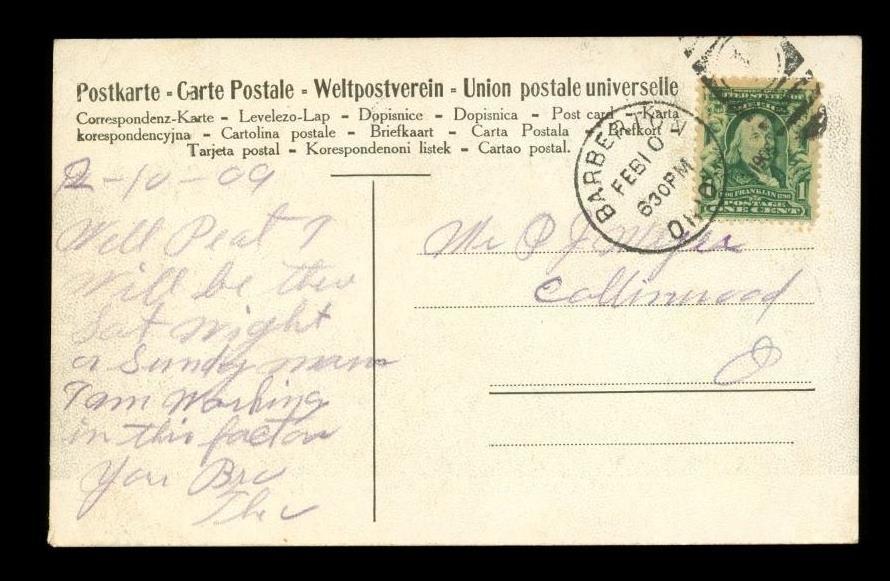 Postkarte - Carte Postale - Weltpostverein - Union postale universelle
Correspondenz-Karte - Levelezo-Lap - Dopisnice - Dopisnica - Post card - Karta
korespondencyjna - Cartolina postale - Briefkaart - Carta Postala - Brefkort
Tarjeta postal - Korespondenoni listek - Cartao postal.
2-10-09
Well Peat I
Will be thee
Sat Night
or Sundy
I am Working
in this facton
Your Bro
BARBERTON
FEB 10
630 PM
OHIO
FRANKLIN
POSTAGE
1
ONE CENT
Mr P J
Collinwood
O